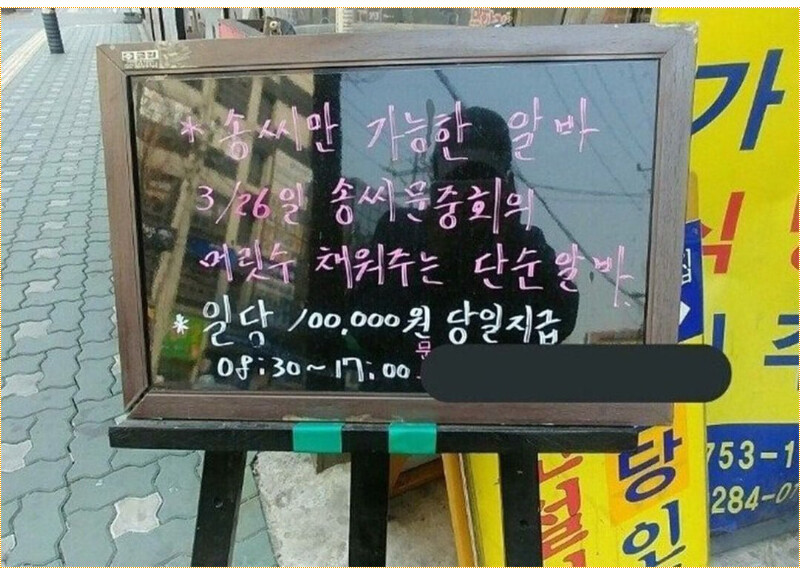 * 송씨만 가능한 알바
3/26일 송씨문중회의
머릿수 채워주는 단순알바
* 일당 100,000원 당일지급
08:30~17:00
문
가
식
주
당
인
753-1
284-07